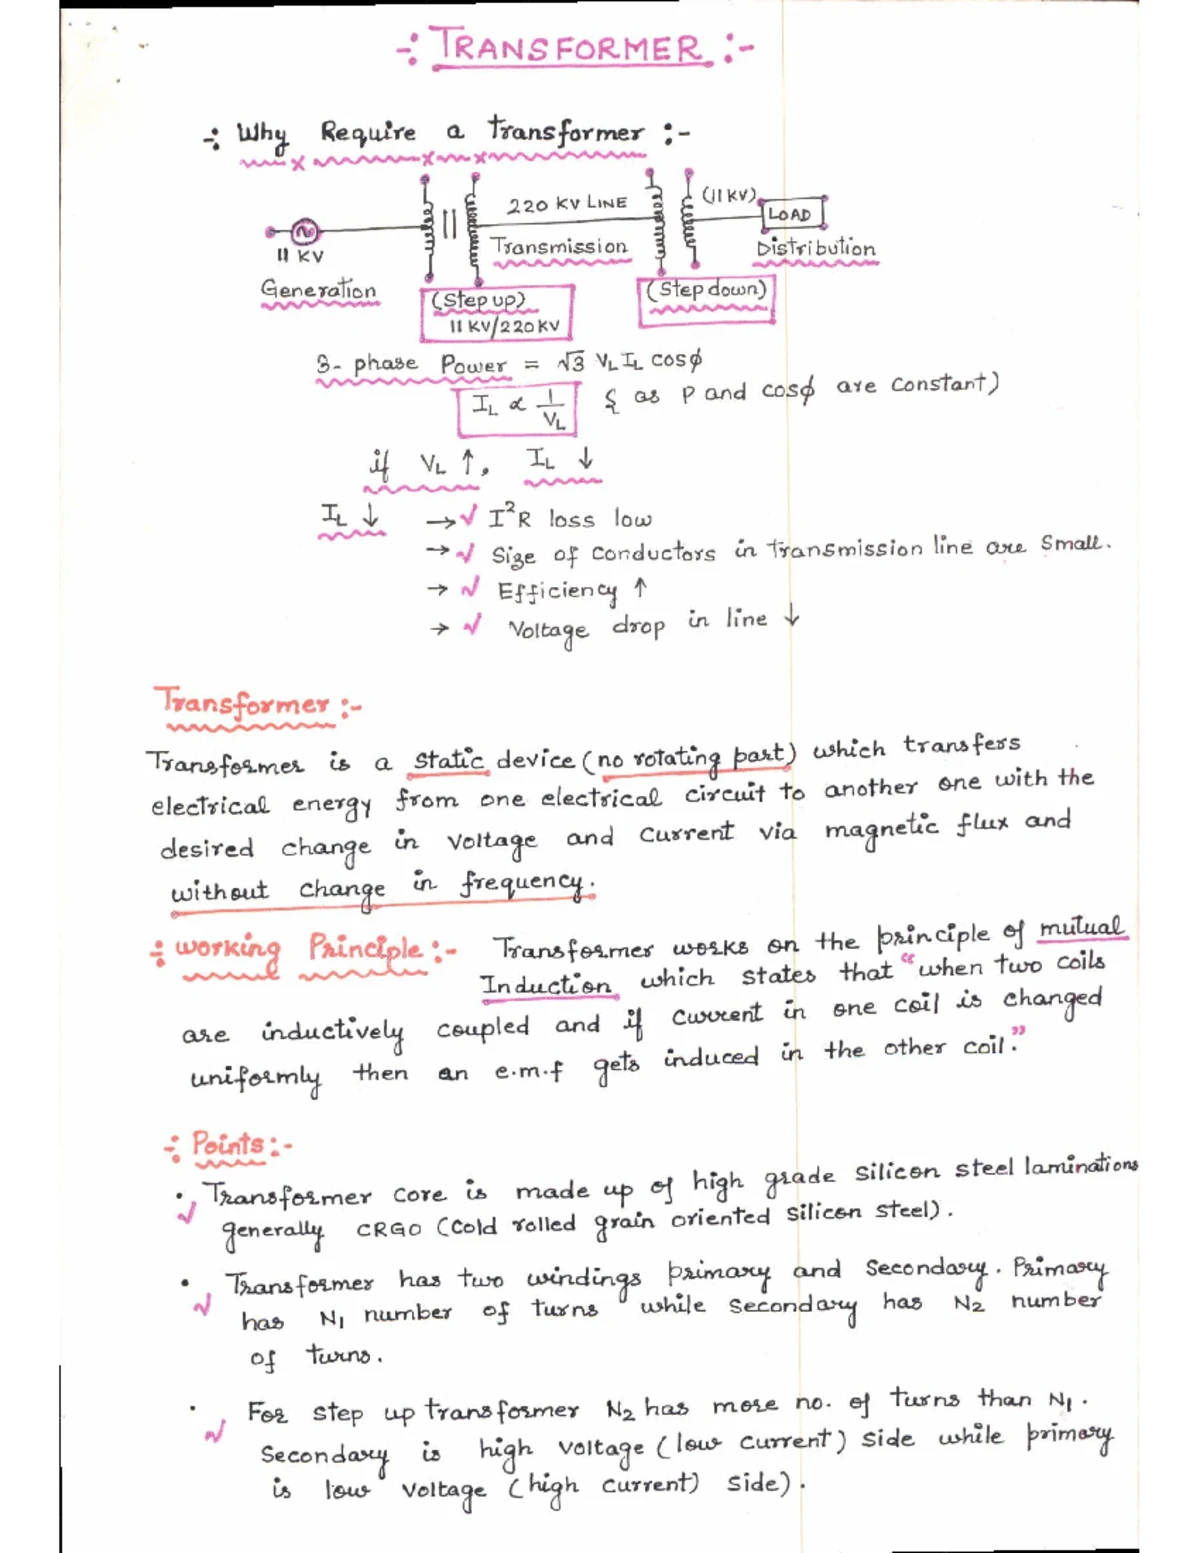 -: TRANSFORMER :-
-: Why Require a transformer :-
220 KV LINE
(11 KV)
LOAD
11 KV
Transmission
Distribution
Generation
(Step up)
11 KV/220KV
(Step down)
3- phase Power = √3 VL IL cosϕ
IL ∝ 1/VL { as P and cosϕ are constant)
if VL ↑, IL ↓
IL ↓ → √ I²R loss low
→ √ Size of conductors in transmission line are Small.
→ √ Efficiency ↑
→ √ Voltage drop in line ↓
Transformer :-
Transformer is a static device (no rotating part) which transfers
electrical energy from one electrical circuit to another one with the
desired change in voltage and current via magnetic flux and
without change in frequency.
-: Working Principle :- Transformer works on the principle of mutual
Induction which states that "when two coils
are inductively coupled and if current in one coil is changed
uniformly then an e.m.f gets induced in the other coil."
-: Points :-
• √ Transformer core is made up of high grade silicon steel laminations
generally CRGO (Cold rolled grain oriented silicon steel).
• √ Transformer has two windings primary and Secondary. Primary
has N1 number of turns while secondary has N2 number
of turns.
• √ For step up transformer N2 has more no. of turns than N1.
Secondary is high voltage (low current) side while primary
is low voltage (high current) side).